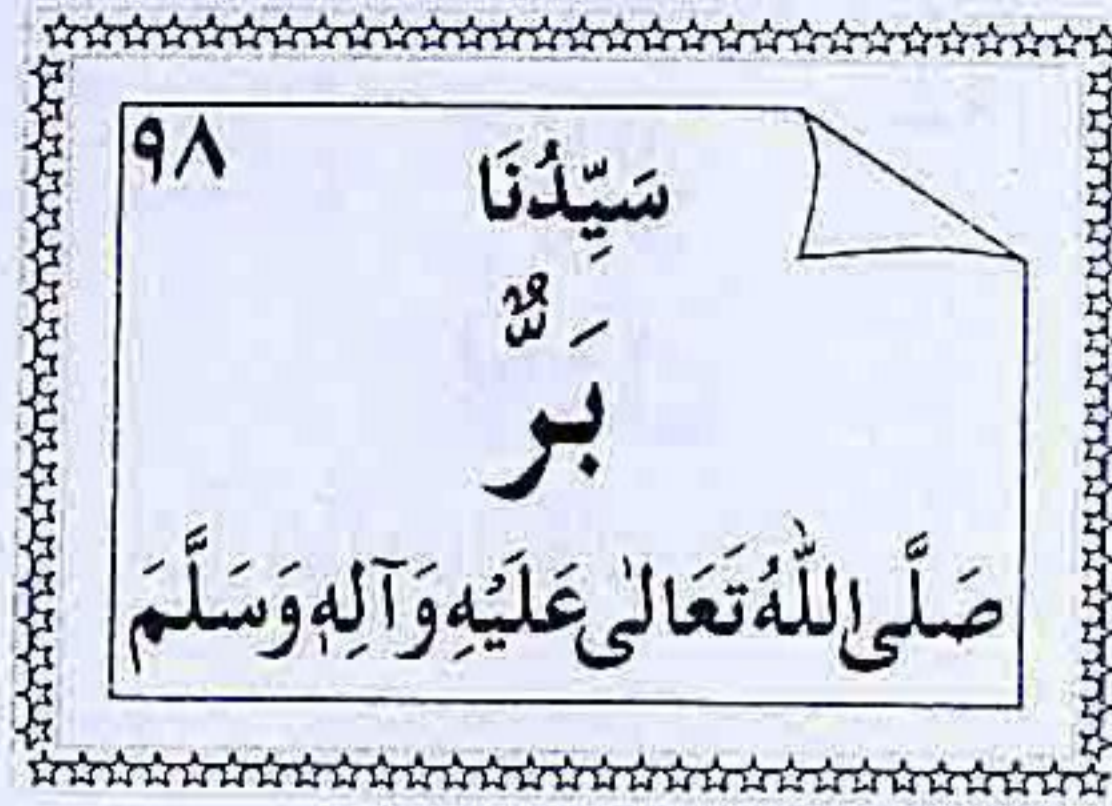 ٩٨
سَيِّدُنَا
بَرٌّ
صَلَّى اللّٰهُ تَعَالٰى عَلَيْهِ وَآلِهٖ وَسَلَّمَ